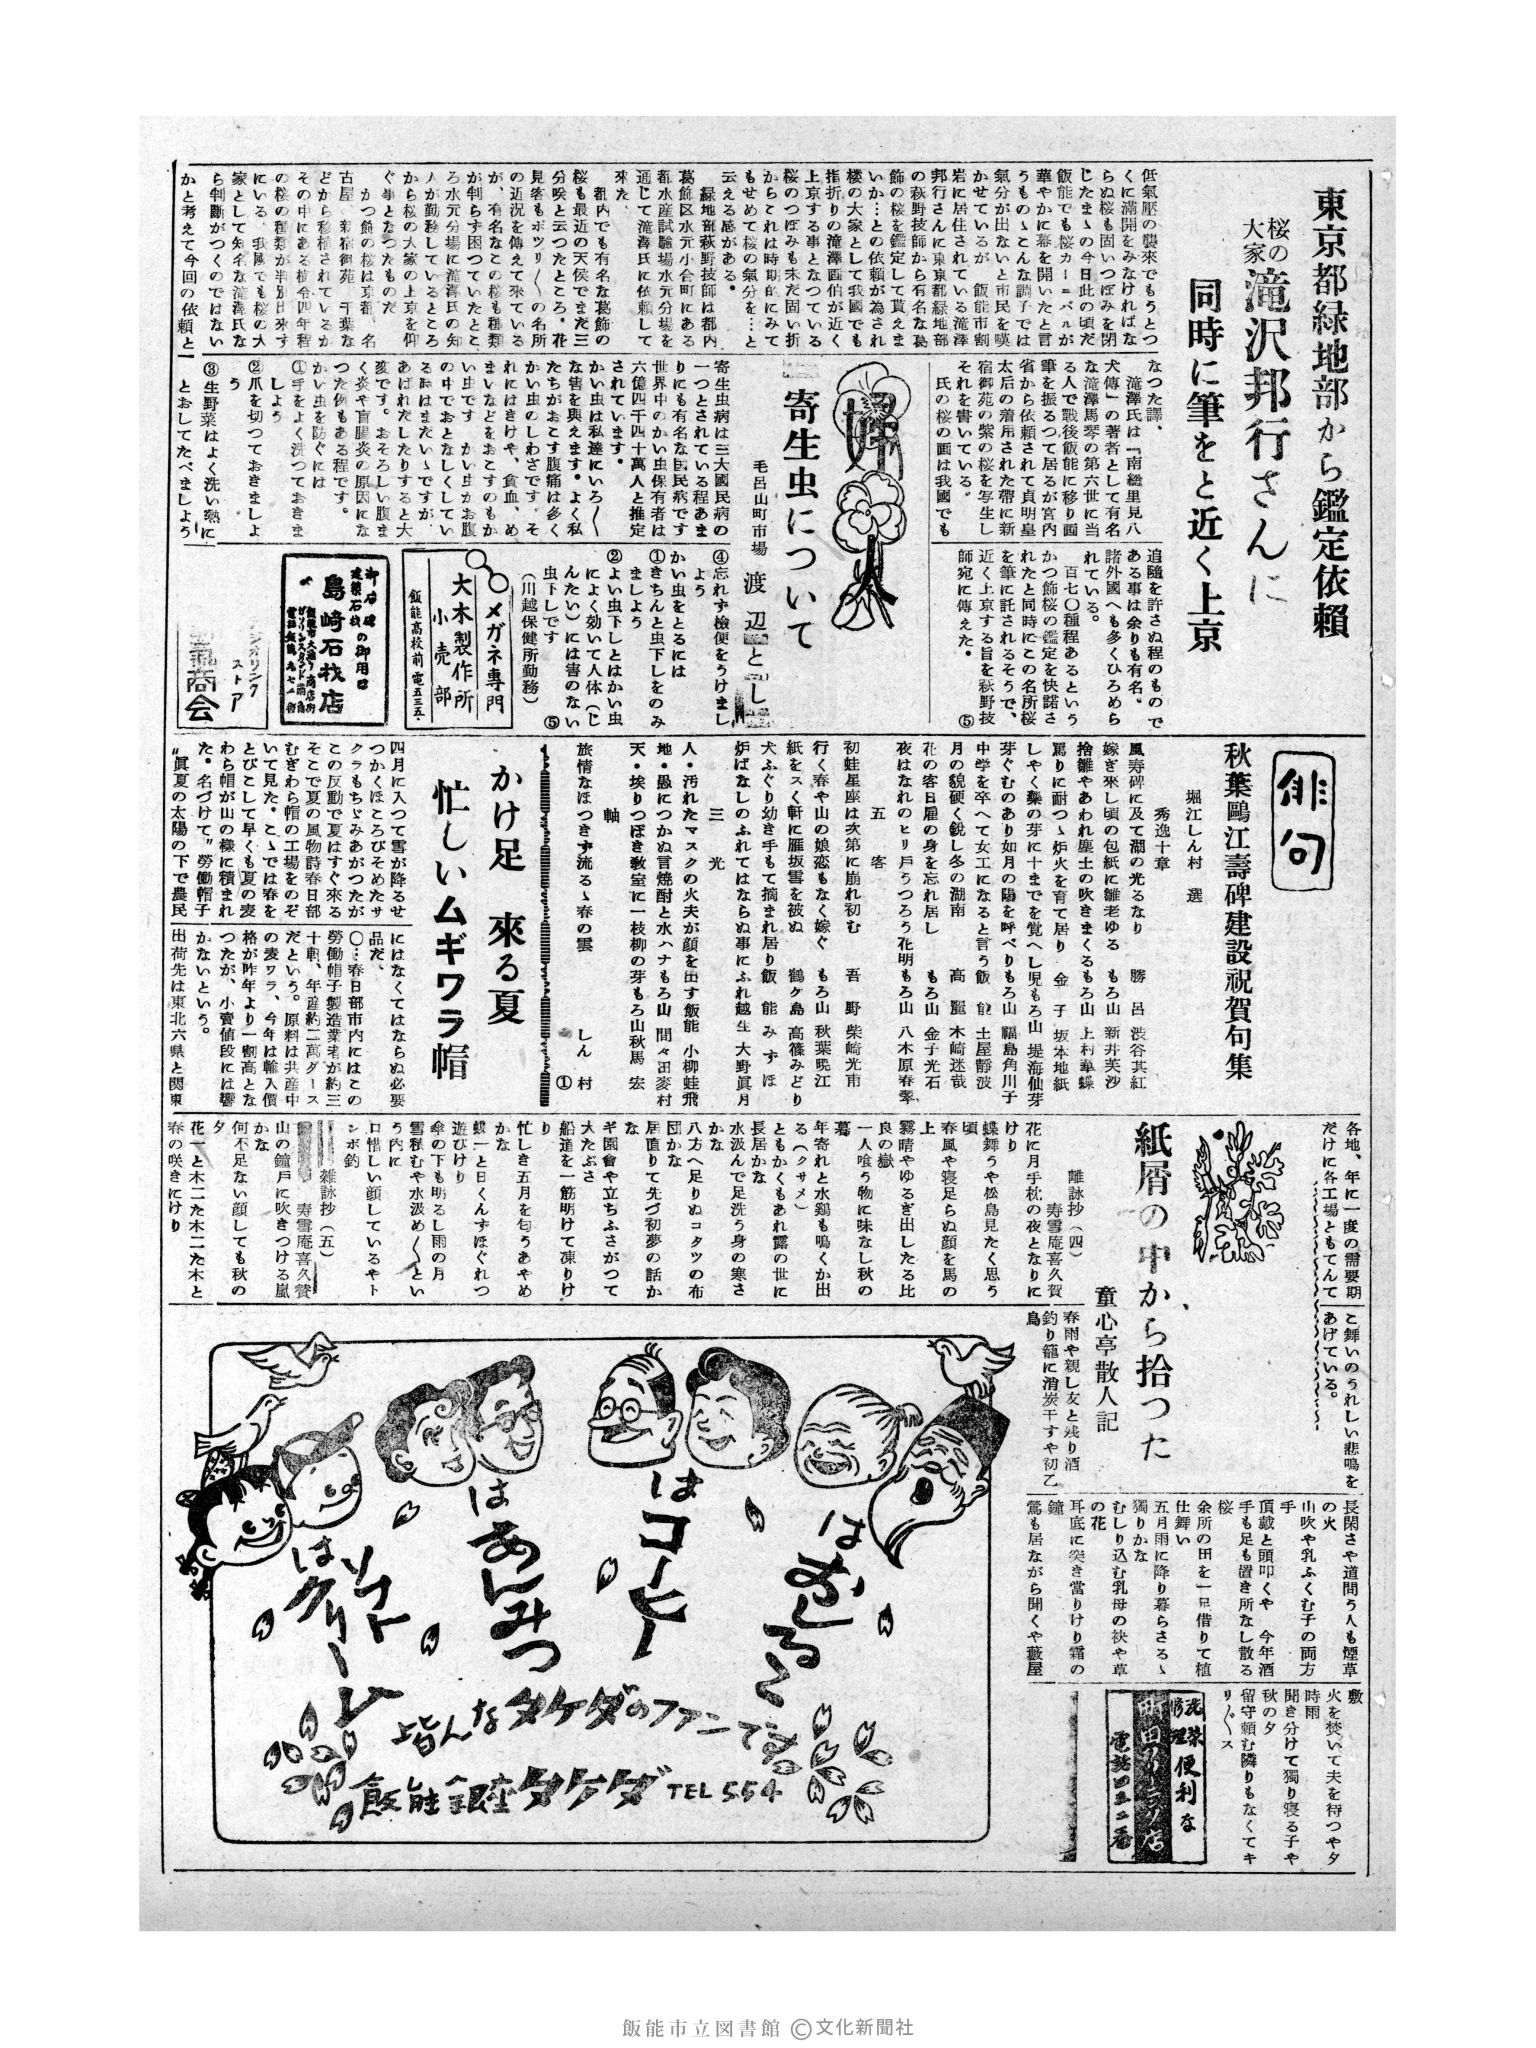 東京都緑地部から鑑定依頼
桜の
大家
滝沢邦行さんに
同時に筆をと近く上京
低氣圧の襲來でもうとつ
くに滿開をみなければな
らぬ桜も固いつぼみを閉
じたまゝの今日此の頃だ
飯能でも桜カーニバルが
華やかに幕を開いたと言
うものゝこんな調子では
氣分が出ないと市民を嘆
かせているが 飯能市割
岩に居住されている滝澤
邦行さんに東京都緑地部
の萩野技師から有名な葛
飾の桜を鑑定して貰えま
いか…との依頼が為され
桜の大家として我國でも
指折りの滝澤画伯が近く
上京する事となつている
桜のつぼみも未だ固い折
からこれは時期的にみて
もせめて桜の氣分を…と
云える感がある。
緑地部萩野技師は都内
葛飾区水元小合町にある
都水産試験場水元分場を
通じて滝澤氏に依頼して
來た、
都内でも有名な葛飾の
桜も最近の天侯でまだ三
分咲と云つたところ。花
見客もポツリ〱の名所
の近況を傳えて來ている
が、有名なこの桜も種類
が判らず困つていたとこ
ろ水元分場に滝澤氏の知
人が勤務しているところ
から桜の大家の上京を仰
ぐ事となつたものだ
かつ飾の桜は京都、名
古屋 新宿御苑 千葉な
どから移植されているが
その中にある樹令四年程
の桜の種類が半別出來ず
にいる、我國でも桜の大
家として知名な滝澤氏な
ら判斷がつくのではない
かと考えて今回の依頼と
なつた譯、
滝澤氏は「南総里見八
犬傳」の著者として有名
な滝澤馬琴の第六世に当
る人で戰後飯能に移り画
筆を振るつて居るが宮内
省から依頼されて貞明皇
太后の着用された帶に新
宿御苑の紫の桜を写生し
それを書いている。
氏の桜の画は我國でも
追隨を許さぬ程のもので
ある事は余りも有名。
諸外國へも多くひろめら
れている。
百七〇種程あるという
かつ飾桜の鑑定を快諾さ
れたと同時にこの名所桜
を筆に託されるそうで、
近く上京する旨を萩野技
師宛に傳えた。 ⑤
婦人
寄生虫について
毛呂山町市場 渡辺とし
寄生虫病は三大國民病の
一つとされている程あま
りにも有名な国民病です
世界中のかい虫保有者は
六億四千四十萬人と推定
されています。
かい虫は私達にいろ〱
な害を與えます。よく私
たちがおこす腹痛は多く
かい虫のしわさです、そ
れにはきけや、貧血、め
まいなどをおこすのもか
い虫です かい虫がお腹
の中でおとなしくしてい
る時はまだいゝですが、
あばれだしたりすると大
変です。おそろしい腹ま
く炎や盲腸炎の原因にな
つた例もある程です。
かい虫を防ぐには
①手をよく洗つておきま
しよう
②爪を切つておきましよ
う
③生野菜はよく洗い熱に
とおしてたべましよう
④忘れず檢便をうけまし
よう
かい虫をとるには
①きちんと虫下しをのみ
ましよう
②よい虫下しとはかい虫
によく効いて人体(じ
んたい)には害のない
虫下しです ⑤
(川越保健所勤務)
メガネ専門
大木製作所
小売部
飯能高校前 電五三五・
御石碑の御用は
建築石材
島崎石材店
ストア
商会
俳句
秋葉鷗江壽碑建設祝賀句集
堀江しん村 選
秀逸十章
風寿碑に及て湖の光るなり 勝呂 渋谷其紅
嫁ぎ來し頃の包紙に雛老ゆる もろ山 新井芙沙
捨雛やあわれ塵土の吹きまくるもろ山 上村華蝶
罵りに耐つゝ炉火を育て居り 金子 坂本地紙
しやく藥の芽に十までを覚へし児もろ山 堤海仙芽
芽ぐむのあり如月の陽を呼べりもろ山 福島角川子
中学を卒へて女工になると言う飯能 土屋靜波
月の貌硬く鋭し冬の湖南 高麗 木崎迷哉
花の客日雇の身を忘れ居し もろ山 金子光石
夜はなれのヒリ戸うつろう花明もろ山 八木原春翠
五客
初蛙星座は次第に崩れ初む 吾野 柴崎光甫
行く春や山の娘恋もなく嫁ぐ もろ山 秋葉暁江
紙をスく軒に雁坂雪を被ぬ 鶴ケ島 高篠みどり
犬ふぐり幼き手もて摘まれ居り飯能 みずほ
炉ばなしのふれてはならぬ事にふれ越生 大野眞月
三光
人・汚れたマスクの火夫が顔を出す飯能 小柳蛙飛
地・愚につかぬ言焼酎と水ハナもろ山 間々田麥村
天・埃りつぽき教室に一枝柳の芽もろ山秋馬 宏
軸
旅情なほつきず流るゝ春の雲 しん村
①
かけ足 來る夏
忙しいムギワラ帽
四月に入つて雪が降るせ
つかくほころびそめたサ
クラもちゞみあがつたが
この反動で夏はすぐ來る
そこで夏の風物詩春日部
むぎわら帽の工場をのぞ
いて見た。こゝでは春を
とびこして早くも夏の麦
わら帽が山の樣に積まれ
た。名づけて〃勞働帽子
〃眞夏の太陽の下で農民
にはなくてはならぬ必要
品だ、
〇…春日部市内にはこの
勞働帽子製造業者が約三
十軒、年産約二萬ダース
だという。原料は共産中
の麦ワラ、今年は輸入價
格が昨年より一割高とな
つたが、小賣値段には響
かないという。
出荷先は東北六県と関東
各地、年に一度の需要期
だけに各工場ともてんて
こ舞いのうれしい悲鳴を
あげている。
紙屑の中から拾つた
童心亭散人記
雑詠抄(四)
寿雪庵喜久賀
花に月手枕の夜となりに
けり
蝶舞うや松島見たく思う
頃
春風や寝足らぬ顔を馬の
上
霧晴やゆるぎ出したる比
良の嶽
一人喰う物に味なし秋の
暮
年寄れと水鶏も鳴くか出
る(クサメ)
ともかくもあれ露の世に
長居かな
水汲んで足洗う身の寒さ
かな
八方へ足りぬコタツの布
団かな
居直りて先づ初夢の話か
な
ギ園會や立ちふさがつて
大たぶさ
船造を一筋明けて凍りけ
り
忙しき五月を匂うあやめ
かな
蝶一と日くんずほぐれつ
遊びけり
傘の下も明るし雨の月
雪積むや水汲め〱とい
う内に
口惜しい顔しているやト
ンボ釣
雑詠抄(五)
寿雪庵喜久賛
山の鐘戸に吹きつける嵐
かな
何不足ない顔しても秋の
夕
花一と木二た木二た木と
春の咲きにけり
春雨や親し友と残り酒
釣り籠に消炭干すや初乙
鳥
長閑さや道問う人も煙草
の火
山吹や乳ふくむ子の両方
手
頂戴と頭叩くや 今年酒
手も足も置き所なし散る
桜
余所の田を一足借りて植
仕舞い
五月雨に降り暮らさるゝ
獨りかな
むしり込む乳母の袂や草
の花
耳底に突き當りけり霜の
鐘
鶯も居ながら聞くや藪屋
敷
火を焚いて夫を待つや夕
時雨
聞き分けて獨り寝る子や
秋の夕
留守頼む隣りもなくてキ
リ〲ス
便利な
はおしるこ
はコーヒー
はあんみつ
はソフト
クリーム
皆んなタケダのファンです
飯能銀座タケダ TEL 554
飯能市立図書館 ©文化新聞社